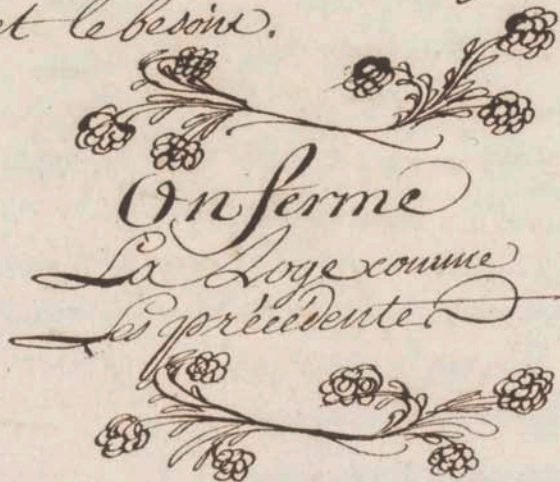 et le besoin.
On ferme
La Loge comme
les précédente